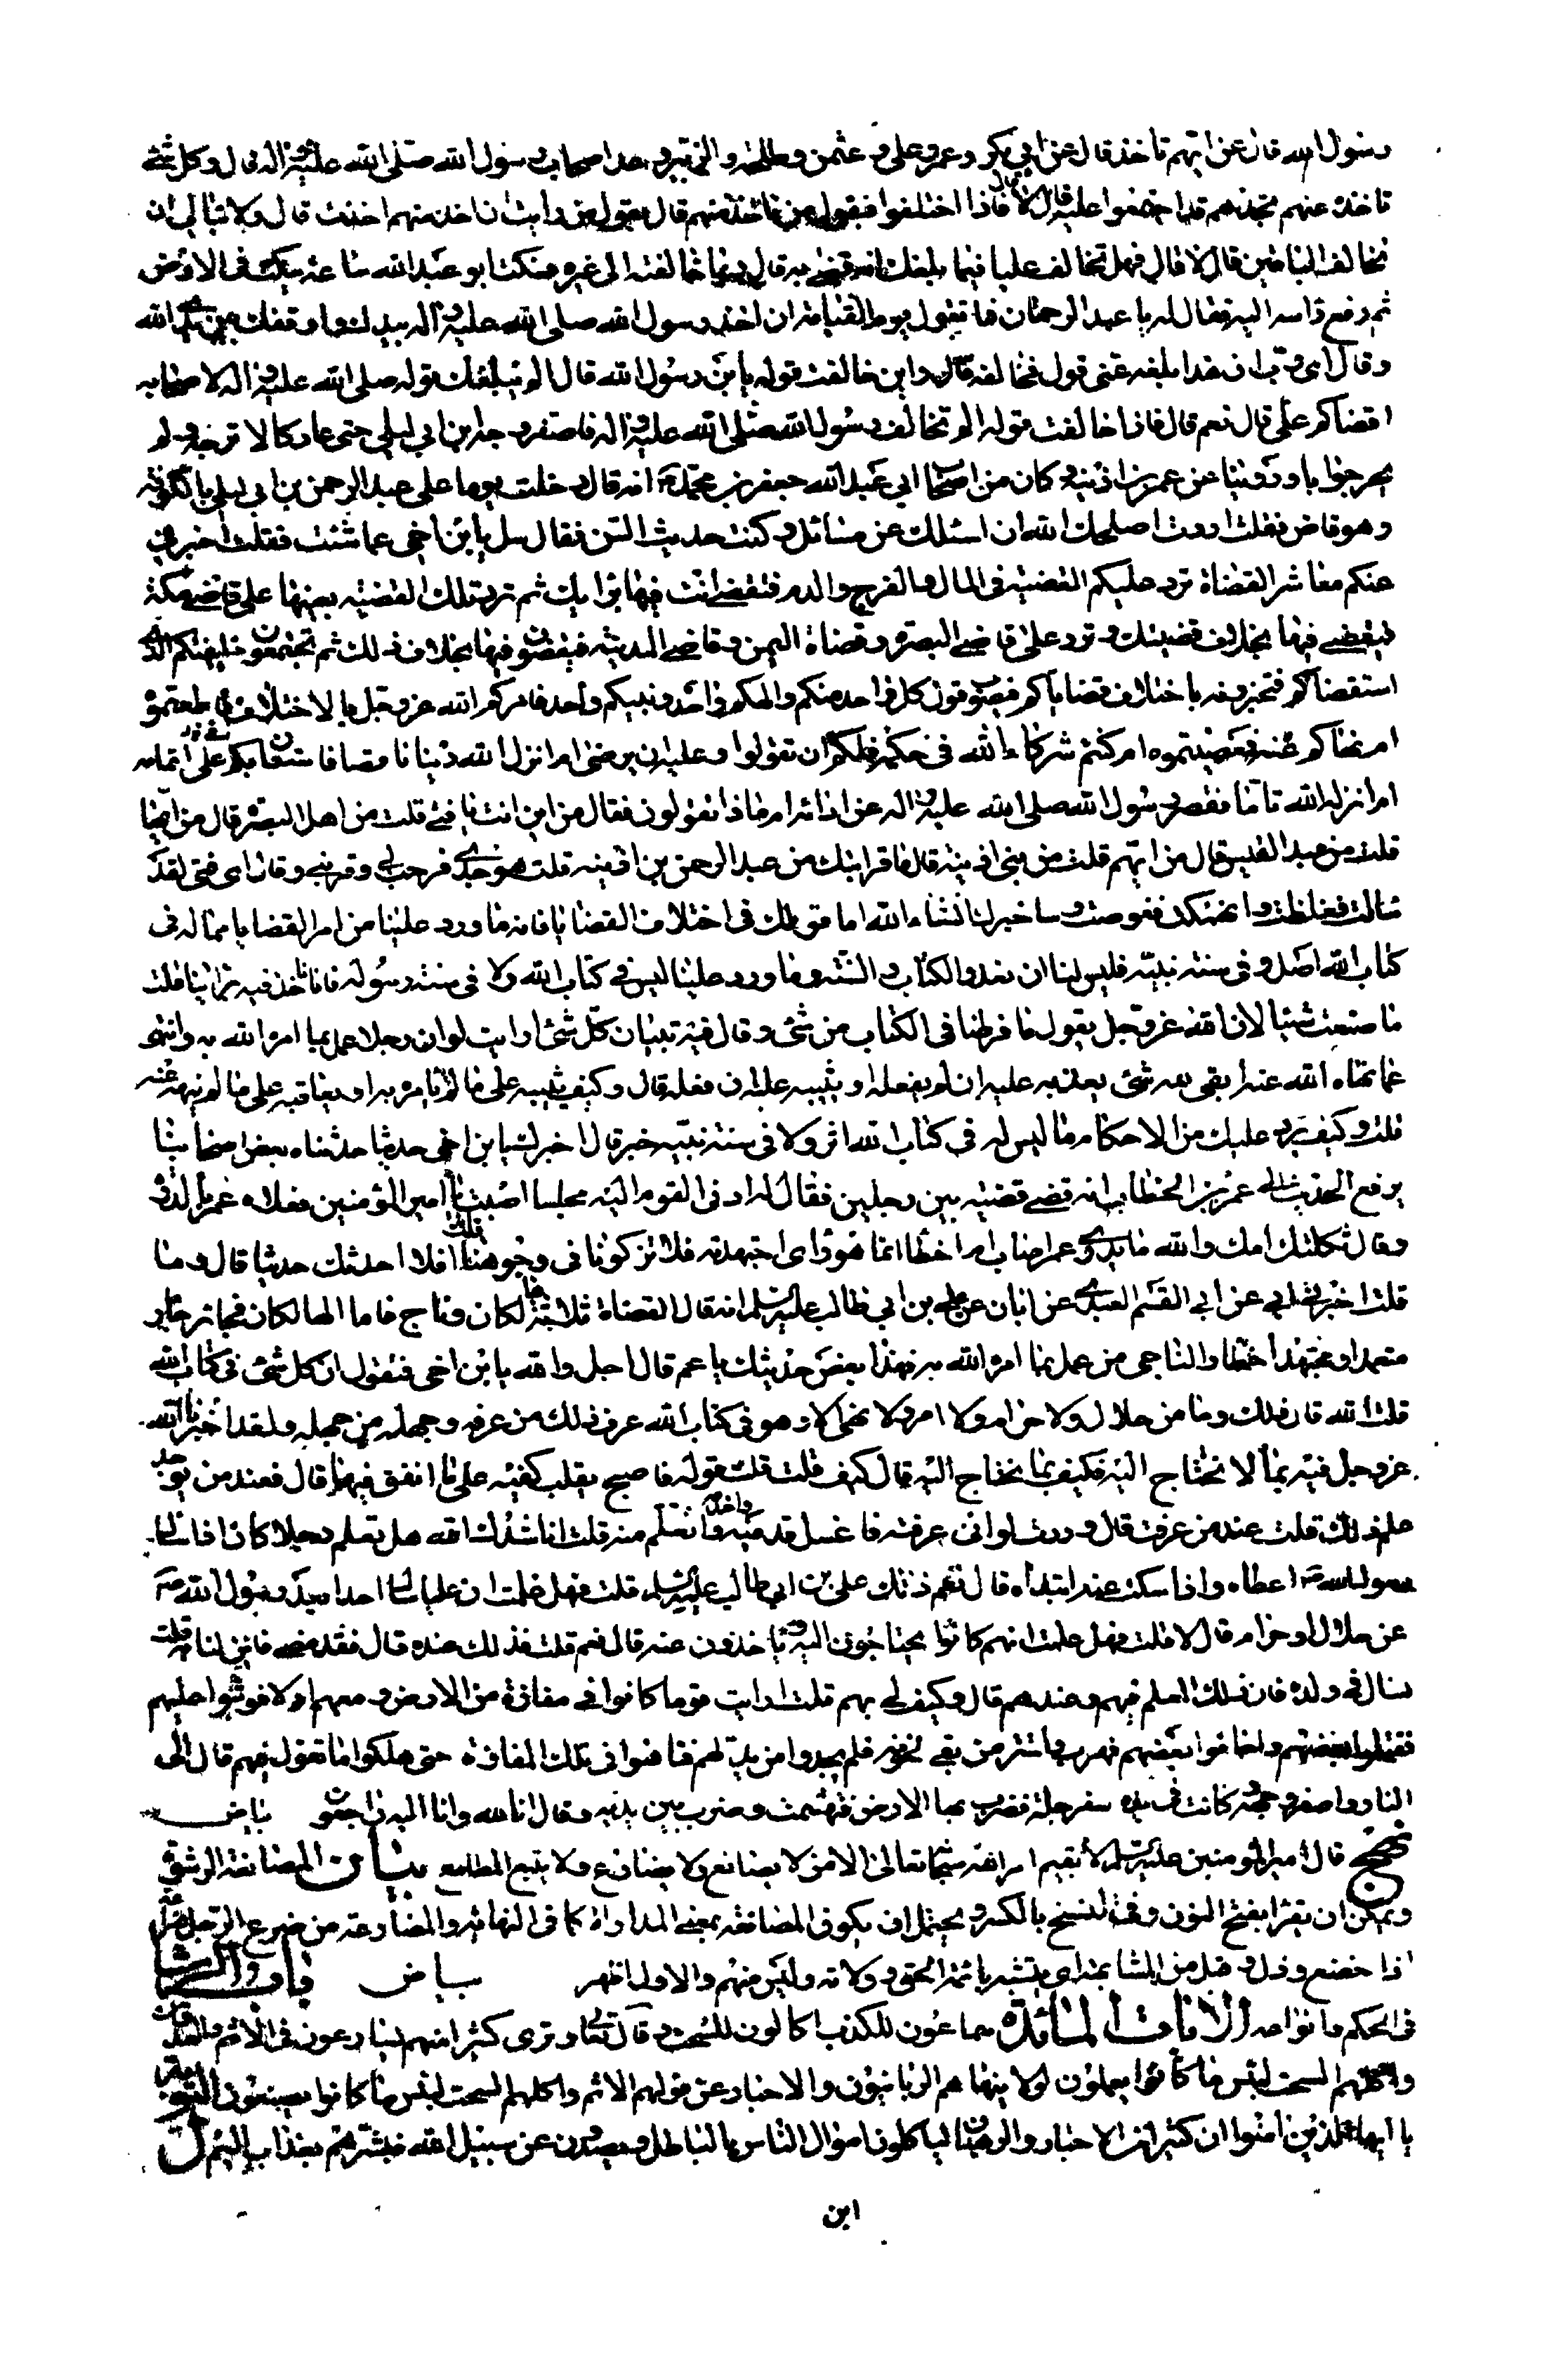 رسول الله قال عن ايهم تاخذ قال عن ابي بكر وعمر وعلى وعثمن وطلحة والزبير وعد اصحاب رسول الله صلى الله عليه واله قال وكل شئ
تاخذه عنهم تجدهم قد اجتمعوا عليه قال لا قال فاذا اختلفوا فبقول من تاخذ منهم قال بقول من رايت ان اخذ منهم اخذت قال ولا تبالى ان
تخالف الباقين قال لا قال فهل تخالف عليا فيما بلغك انه قضى به قال ربما خالفته الى غيره فسكت ابو عبد الله ساعة ينكت فى الارض
ثم رفع راسه اليه فقال له يا عبد الرحمن فما تقول يوم القيامة ان اخذ رسول الله صلى الله عليه واله بيدك واوقفك بين يدى الله
وقال اى رب ان هذا بلغه عنى قول فخالفه قال واين خالفت قوله يابن رسول الله قال الم يبلغك قوله صلى الله عليه واله لاصحابه
اقضاكم على قال نعم قال فاذا خالفت قوله الم تخالف رسول الله صلى الله عليه واله فاصفر وجه ابن ابى ليلى حتى عاد كالاترجة ولم
يحر جوابا وروينا عن عمر بن اذينه وكان من اصحاب ابى عبد الله جعفر بن محمد انه قال دخلت يوما على عبد الرحمن بن ابى ليلى بالكوفة
وهو قاض فقلت اردت اصلحك الله ان اسئلك عن مسائل وكنت حديث السن فقال سل يابن اخى عما شئت فقلت اخبرنى
عنكم معاشر القضاة ترد عليكم القضية فى المال والفرج والدم فتقضى انت فيها برايك ثم ترد تلك القضية بعينها على قاضى مكة
فيقضى فيها بخلاف قضيتك وترد على قاضى البصرة وقضاة اليمن وقاضى المدينة فيقضون فيها بخلاف ذلك ثم تجتمعون عند خليفتكم الذى
استقضاكم فتخبرونه باختلاف قضاياكم فيصوب قول كل واحد منكم والهكم واحد ونبيكم واحد فامركم الله عز وجل بالاختلاف فاطعتموه
ام نهاكم عنه فعصيتموه ام كنتم شركاء الله فى حكمه فلكم ان تقولوا وعليه ان يرضى ام انزل الله دينا ناقصا فاستعان بكم على اتمامه
ام انزله الله تاما فقصر رسول الله صلى الله عليه واله عن ادائه ام ماذا تقولون فقال من اين انت يا فتى قلت من اهل البصرة قال من ايها
قلت من عبد القيس قال من ايهم قلت من بنى اذينة قال ما قرابتك من عبد الرحمن بن اذينه قلت هو جدى فرحب بى وقربنى وقال اى فتى لقد
سالت فغلظت وانهمكت فعوصت وساخبرك انشاء الله اما قولك فى اختلاف القضايا فانه ما ورد علينا من امر القضايا مما له فى
كتاب الله اصل وفى سنة نبيه فليس لنا ان نعدو الكتاب والسنة وما ورد علينا ليس فى كتاب الله ولا فى سنة رسوله فانا ناخذ فيه براينا قلت
ما صنعت شيئا لان الله عز وجل يقول ما فرطنا فى الكتاب من شئ وقال فيه تبيان كل شئ ارايت لو ان رجلا عمل بما امره الله به وانتهى
عما نهاه الله عنه ابقى لله شئ يعذبه عليه ان لم يفعله او يثيبه عليه ان فعله قال وكيف يثيبه على ما لم يامره به او يعاقبه على ما لم ينهه عنه
قلت وكيف يرد عليك من الاحكام ما ليس له فى كتاب الله اثر ولا فى سنة نبيه خبر قال اخبرك يابن اخى حديثا حدثناه بعض اصحابنا
يرفع الحديث الى عمر بن الخطاب انه قضى قضية بين رجلين فقال له ادنى القوم اليه مجلسا اصبت يا امير المؤمنين فعلاه عمر بالدرة
وقال ثكلتك امك والله ما يدرى عمر اصاب ام اخطا انما هو راى اجتهدته فلا تزكونا فى وجوهنا قلت افلا احدثك حديثا قال وما هو
قلت اخبرنى ابى عن ابى القسم العبدى عن ابان عن على بن ابى طالب عليه السلم انه قال القضاة ثلاثة هالكان وناج فاما الهالكان فجائر جار
متعمدا ومجتهد اخطا والناجى من عمل بما امره الله به فهذا نقض حديثك يا عم قال اجل والله يابن اخى فتقول ان كل شئ فى كتاب الله
قلت الله قال ذلك وما من حلال ولا حرام ولا امر ولا نهى الا وهو فى كتاب الله عرف ذلك من عرفه وجهله من جهله ولقد اخبرنا الله
عز وجل فيه بما لا نحتاج اليه فكيف بما نحتاج اليه قال كيف قلت قلت قوله فاصبح يقلب كفيه على ما انفق فيها قال فعند من يوجد
علم ذلك قلت عند من عرفت قال وددت لو انى عرفته فاغسل قدميه واخدمه واتعلم منه قلت اناشدك الله هل تعلم رجلا كان اذا سال
رسول الله ص اعطاه واذا سكت عنه ابتداه قال نعم ذلك على بن ابى طالب عليه السلم قلت فهل علمت ان عليا سال احدا بعد رسول الله ص
عن حلال او حرام قال لا قلت فهل علمت انهم كانوا يحتاجون اليه وياخذون عنه قال نعم قلت فذلك عنده قال فقد مضى فاين لنا به قلت
تسال فى ولده فان ذلك العلم فيهم وعندهم قال وكيف لى بهم قلت ارايت قوما كانوا فى مفازة من الارض ومعهم ادلاء فوثبوا عليهم
فقتلوا بعضهم واخافوا بعضهم فهرب واستتر من بقى لخوفه فلم يجدوا من يدلهم فتاهوا فى تلك المفازة حتى هلكوا ما تقول فيهم قال الى
النار واصفر وجهه كانت فى يده سفرجلة فضرب بها الارض فتهشمت وضرب بين يديه وقال انا لله وانا اليه راجعون بياض
نهج قال امير المؤمنين عليه السلم لا يقيم امر الله سبحانه تعالى الا من لا يصانع ولا يضارع ولا يتبع المطامع بيان المصانعة الرشوة
ويمكن ان يقرا بفتح النون وفى النسخ بالكسر ويحتمل ان يكون المصانعة بمعنى المداراة كما فى النهاية والمضارعة من ضرع الرجل ضراعة
اذا خضع وذل وقيل من المشابهة اى يتشبه بائمة الحق وولاته وليس منهم والاول اظهر بياض باب الرشا
فى الحكم وانواعه الايات المائدة سماعون للكذب اكالون للسحت وقال تعالى وترى كثيرا منهم يسارعون فى الاثم والعدوان
واكلهم السحت لبئس ما كانوا يعملون لولا ينهاهم الربانيون والاحبار عن قولهم الاثم واكلهم السحت لبئس ما كانوا يصنعون التوبة
يا ايها الذين امنوا ان كثيرا من الاحبار والرهبان لياكلون اموال الناس بالباطل ويصدون عن سبيل الله فبشرهم بعذاب اليم ل
ابن